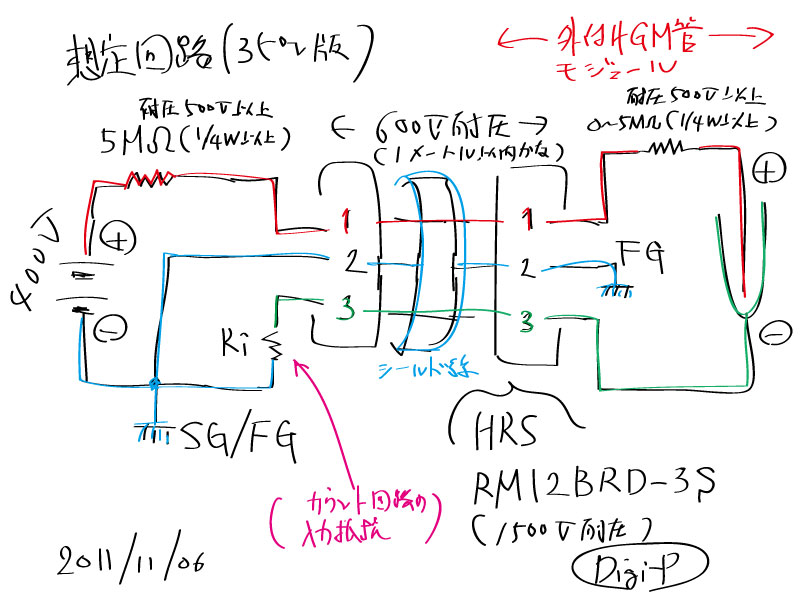 想定回路(3ピン版)
← 外付けGM管 →
モジュール
耐圧500V以上
5MΩ(1/4W以上)
← 600V耐圧 →
(1メートル以内かな)
耐圧500V以上
0~5MΩ(1/4W以上)
400V
+
-
1
2
3
Ri
シールド線
1
2
3
FG
+
-
SG/FG
(カウント回路の
入力抵抗)
(HRS
RM12BRD-3S
(1500V耐圧)
Digi-P
2011/11/06